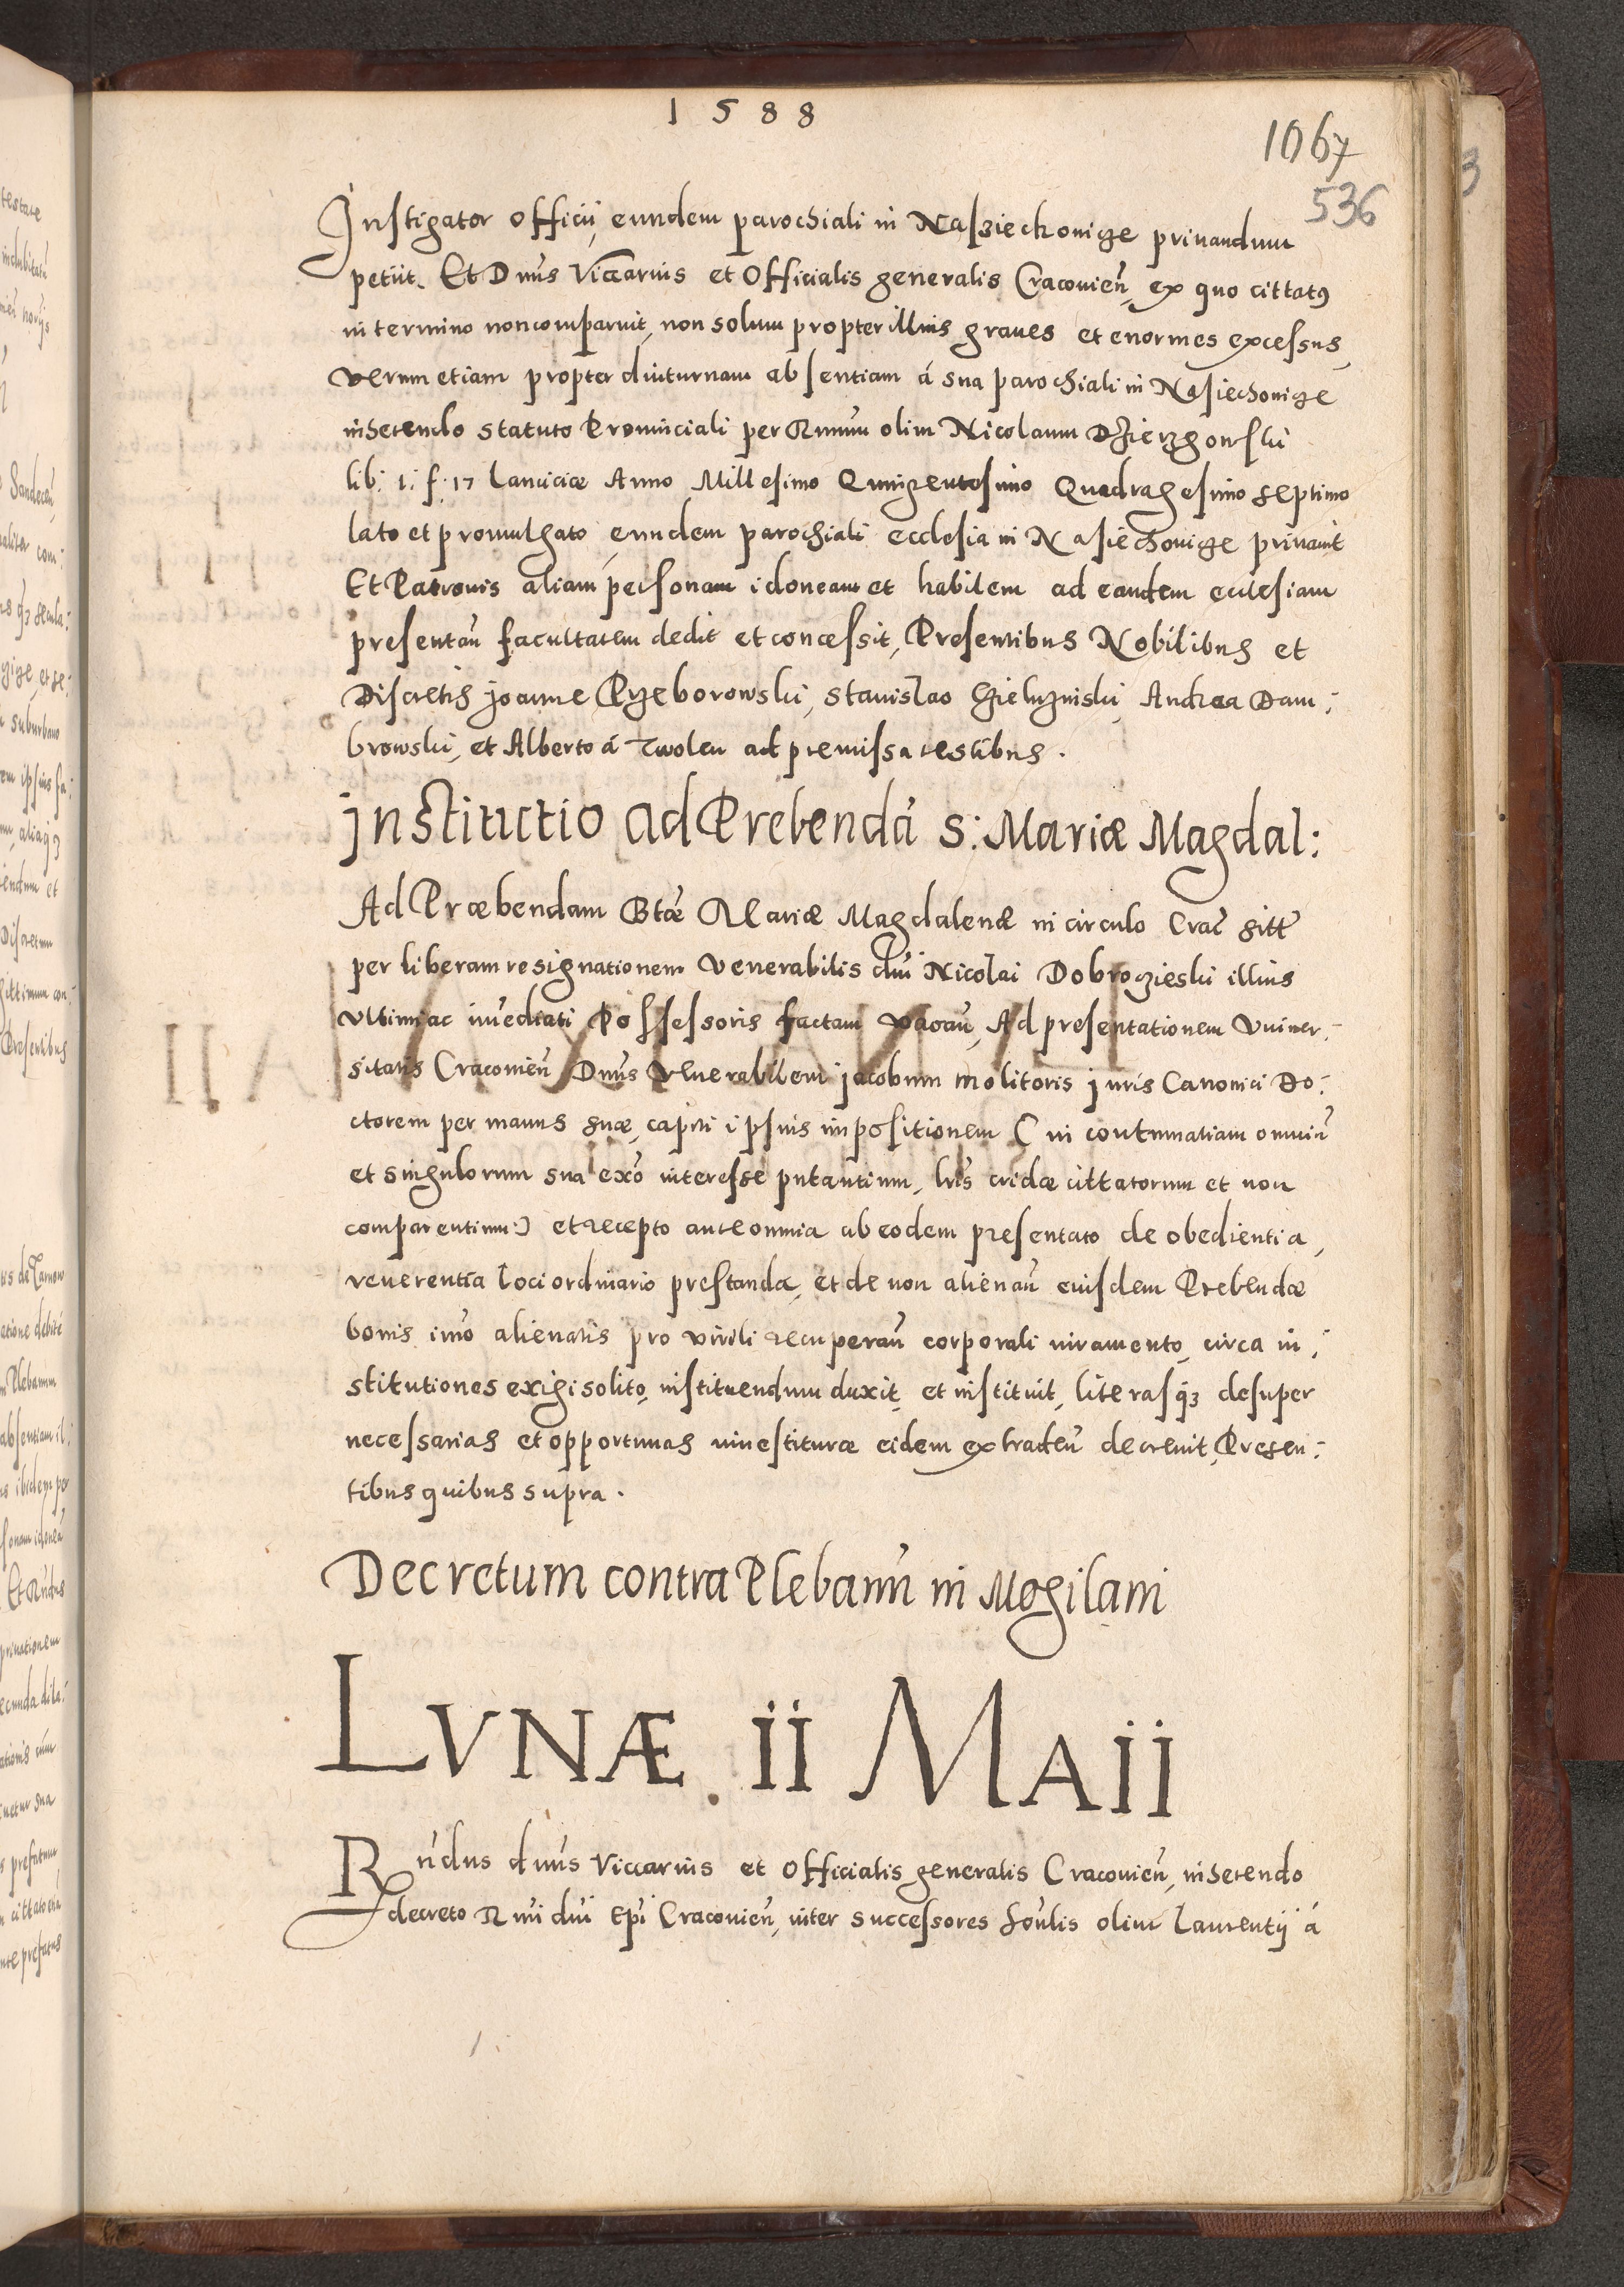 1588
1067
536
Instigator officii, eundem parochiali in Nasziechouicze priuandum
petiit. Et Dnus Viccarius et Officialis generalis Cracouien̄, ex quo cittatꝰ
in termino non comparuit, non solum propter illius graues et enormes excessus,
verum etiam propter diuturnam absentiam á sua parochiali in Nasiechouicze
inherendo statuto Prouinciali per Rmum olim Nicolaum Dzierzgowski
lib: 1. f. 17 Lanciciæ Anno Millesimo Quingentesimo Quadragesimo septimo
lato et promulgato, eundem parochiali ecclesia in Nasiechouicze priuauit
Et Patronis aliam personam idoneam et habilem ad eandem ecclesiam
presentan̄ facultatem dedit et concessit, Presentibus Nobilibus et
Discretis Joanne Przeborowski, Stanislao Gieluzniski, Andrea Dam:
browski, et Alberto á Zwolen ad premissa testibus.
Institutio ad Prebendā S: Mariæ Magdal:
Ad Præbendam Btæ Mariæ Magdalenæ in circulo Crac̄ sitt̄
per liberam resignationem Venerabilis dni Nicolai Dobroczieski illius
vltimi ac im̄ediati Possessoris factam vacan̄, Ad presentationem Vniuer:
sitatis Cracouien̄ Dnus Venerabilem Jacobum Molitoris Juris Canonici Do:
ctorem per manus suæ, capiti ipsius impositionem (: in contumatiam omniū
et singulorum sua exō interesse putantium, lris cridæ cittatorum et non
comparentium:) et recepto ante omnia ab eodem presentato de obedientia,
reuerentia loci ordinario prestanda, et de non alienan̄ eiusdem Prebendæ
bonis imō alienatis pro virili recuperan̄ corporali iuramento, circa in:
stitutiones exigi solito, instituendum duxit, et instituit, literasqȝ desuper
necessarias et opportunas inuestituræ eidem extraden̄ decreuit, Presen:
tibus quibus supra.
Decretum contra Plebanū in Mogilani
LVNÆ. II MAII
Rn̄dus dnus Viccarius et Officialis generalis Cracouien̄, inherendo
decreto Rmi dni Epi Cracouien̄, inter successores hon̄lis olim Laurentij á